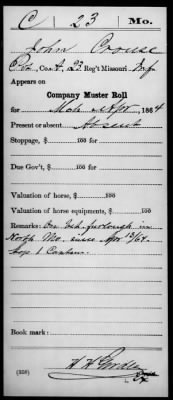 C | 23 | Mo.
John Crouse
Pvt., Co. A, 23 Reg't Missouri Inf.
Appears on
Company Muster Roll
for Mch & Apr, 1864
Present or absent Absent
Stoppage, $ 100 for
Due Gov't, $ 100 for
Valuation of horse, $ 100
Valuation of horse equipments, $ 100
Remarks: On furlough in
North Mo. since Apr 13/64.
Stop 1 Canteen.
Book mark:
(358)
Copyist.